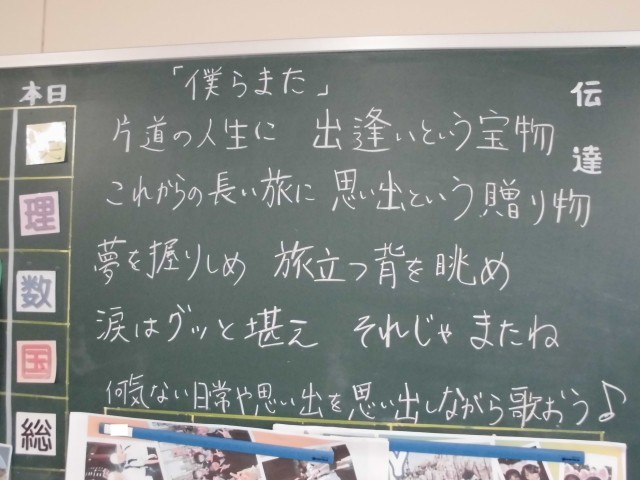 本日
理
数
国
総
伝達
「僕らまた」
片道の人生に 出逢いという宝物
これからの長い旅に 思い出という贈り物
夢を握りしめ 旅立つ背を眺め
涙はグッと堪え それじゃまたね
何気ない日常や思い出を思い出しながら歌おう♪